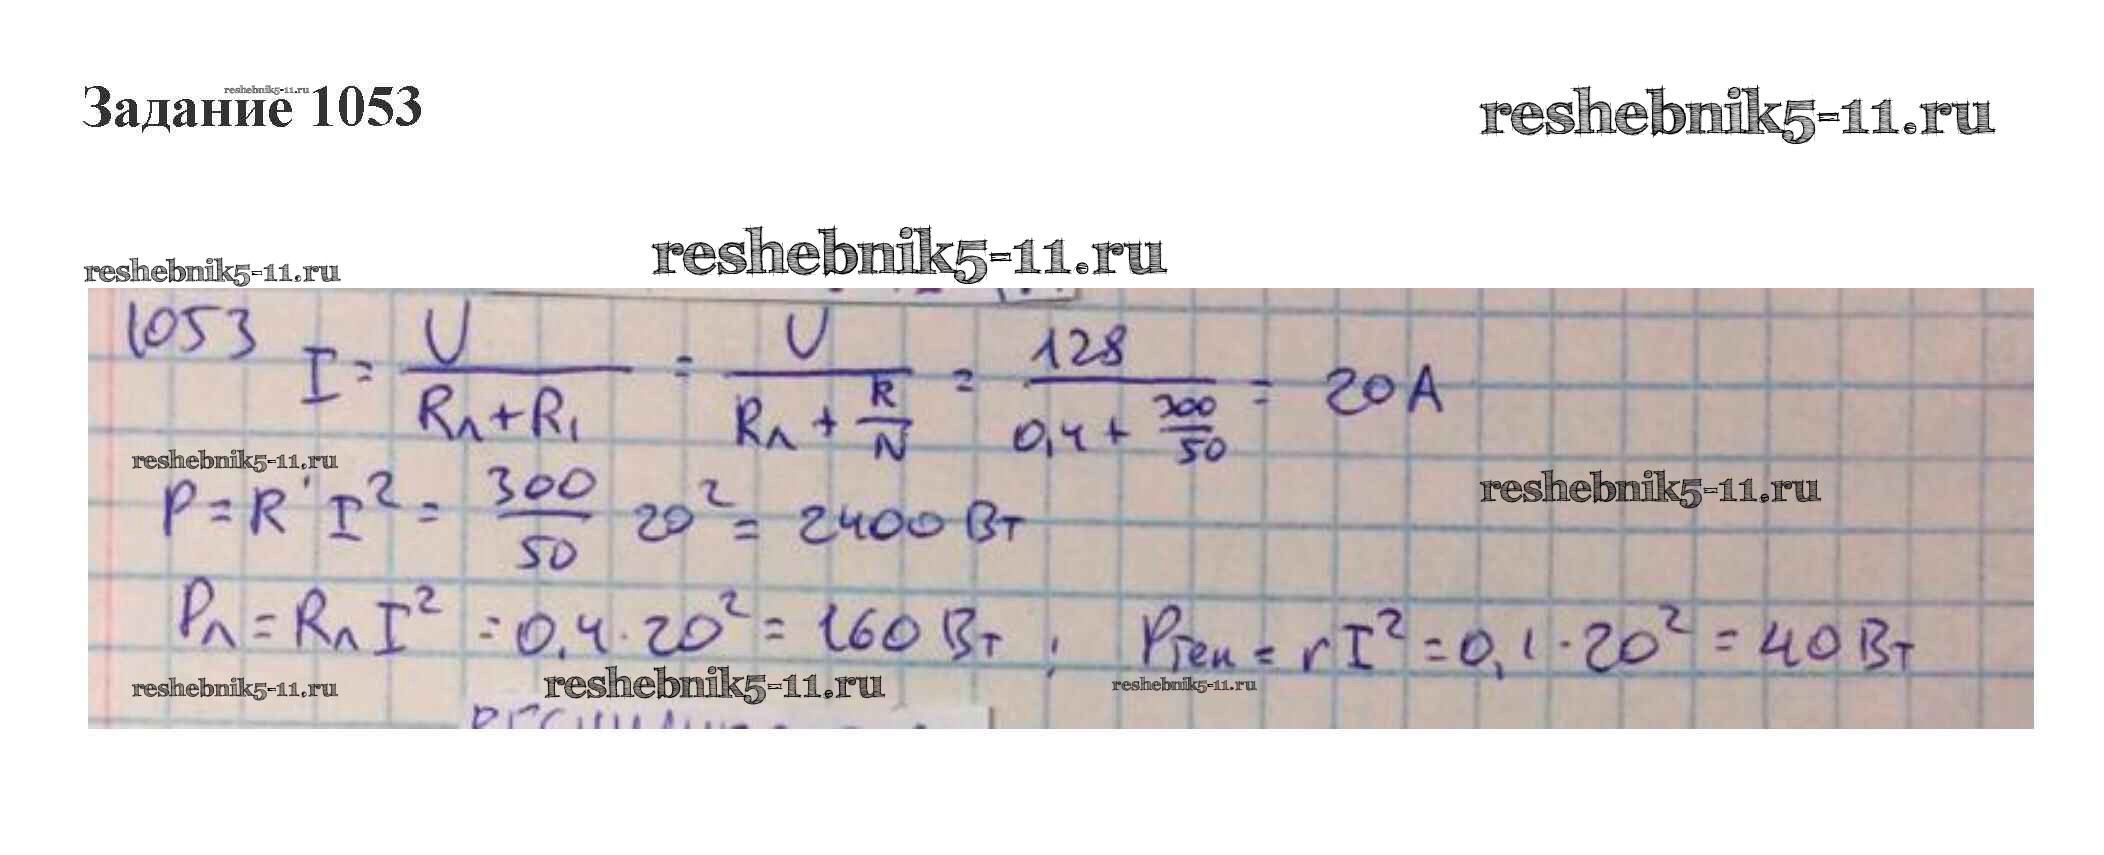 Задание 1053
reshebnik5-11.ru
reshebnik5-11.ru
reshebnik5-11.ru
reshebnik5-11.ru
1053 I = U / (Rл + R₁) = U / (Rл + R/N) = 128 / (0,4 + 300/50) = 20 А
reshebnik5-11.ru
P = R' I² = 300/50 20² = 2400 Вт
reshebnik5-11.ru
Pл = Rл I² = 0,4 · 20² = 160 Вт ; Pген = r I² = 0,1 · 20² = 40 Вт
reshebnik5-11.ru
reshebnik5-11.ru
reshebnik5-11.ru